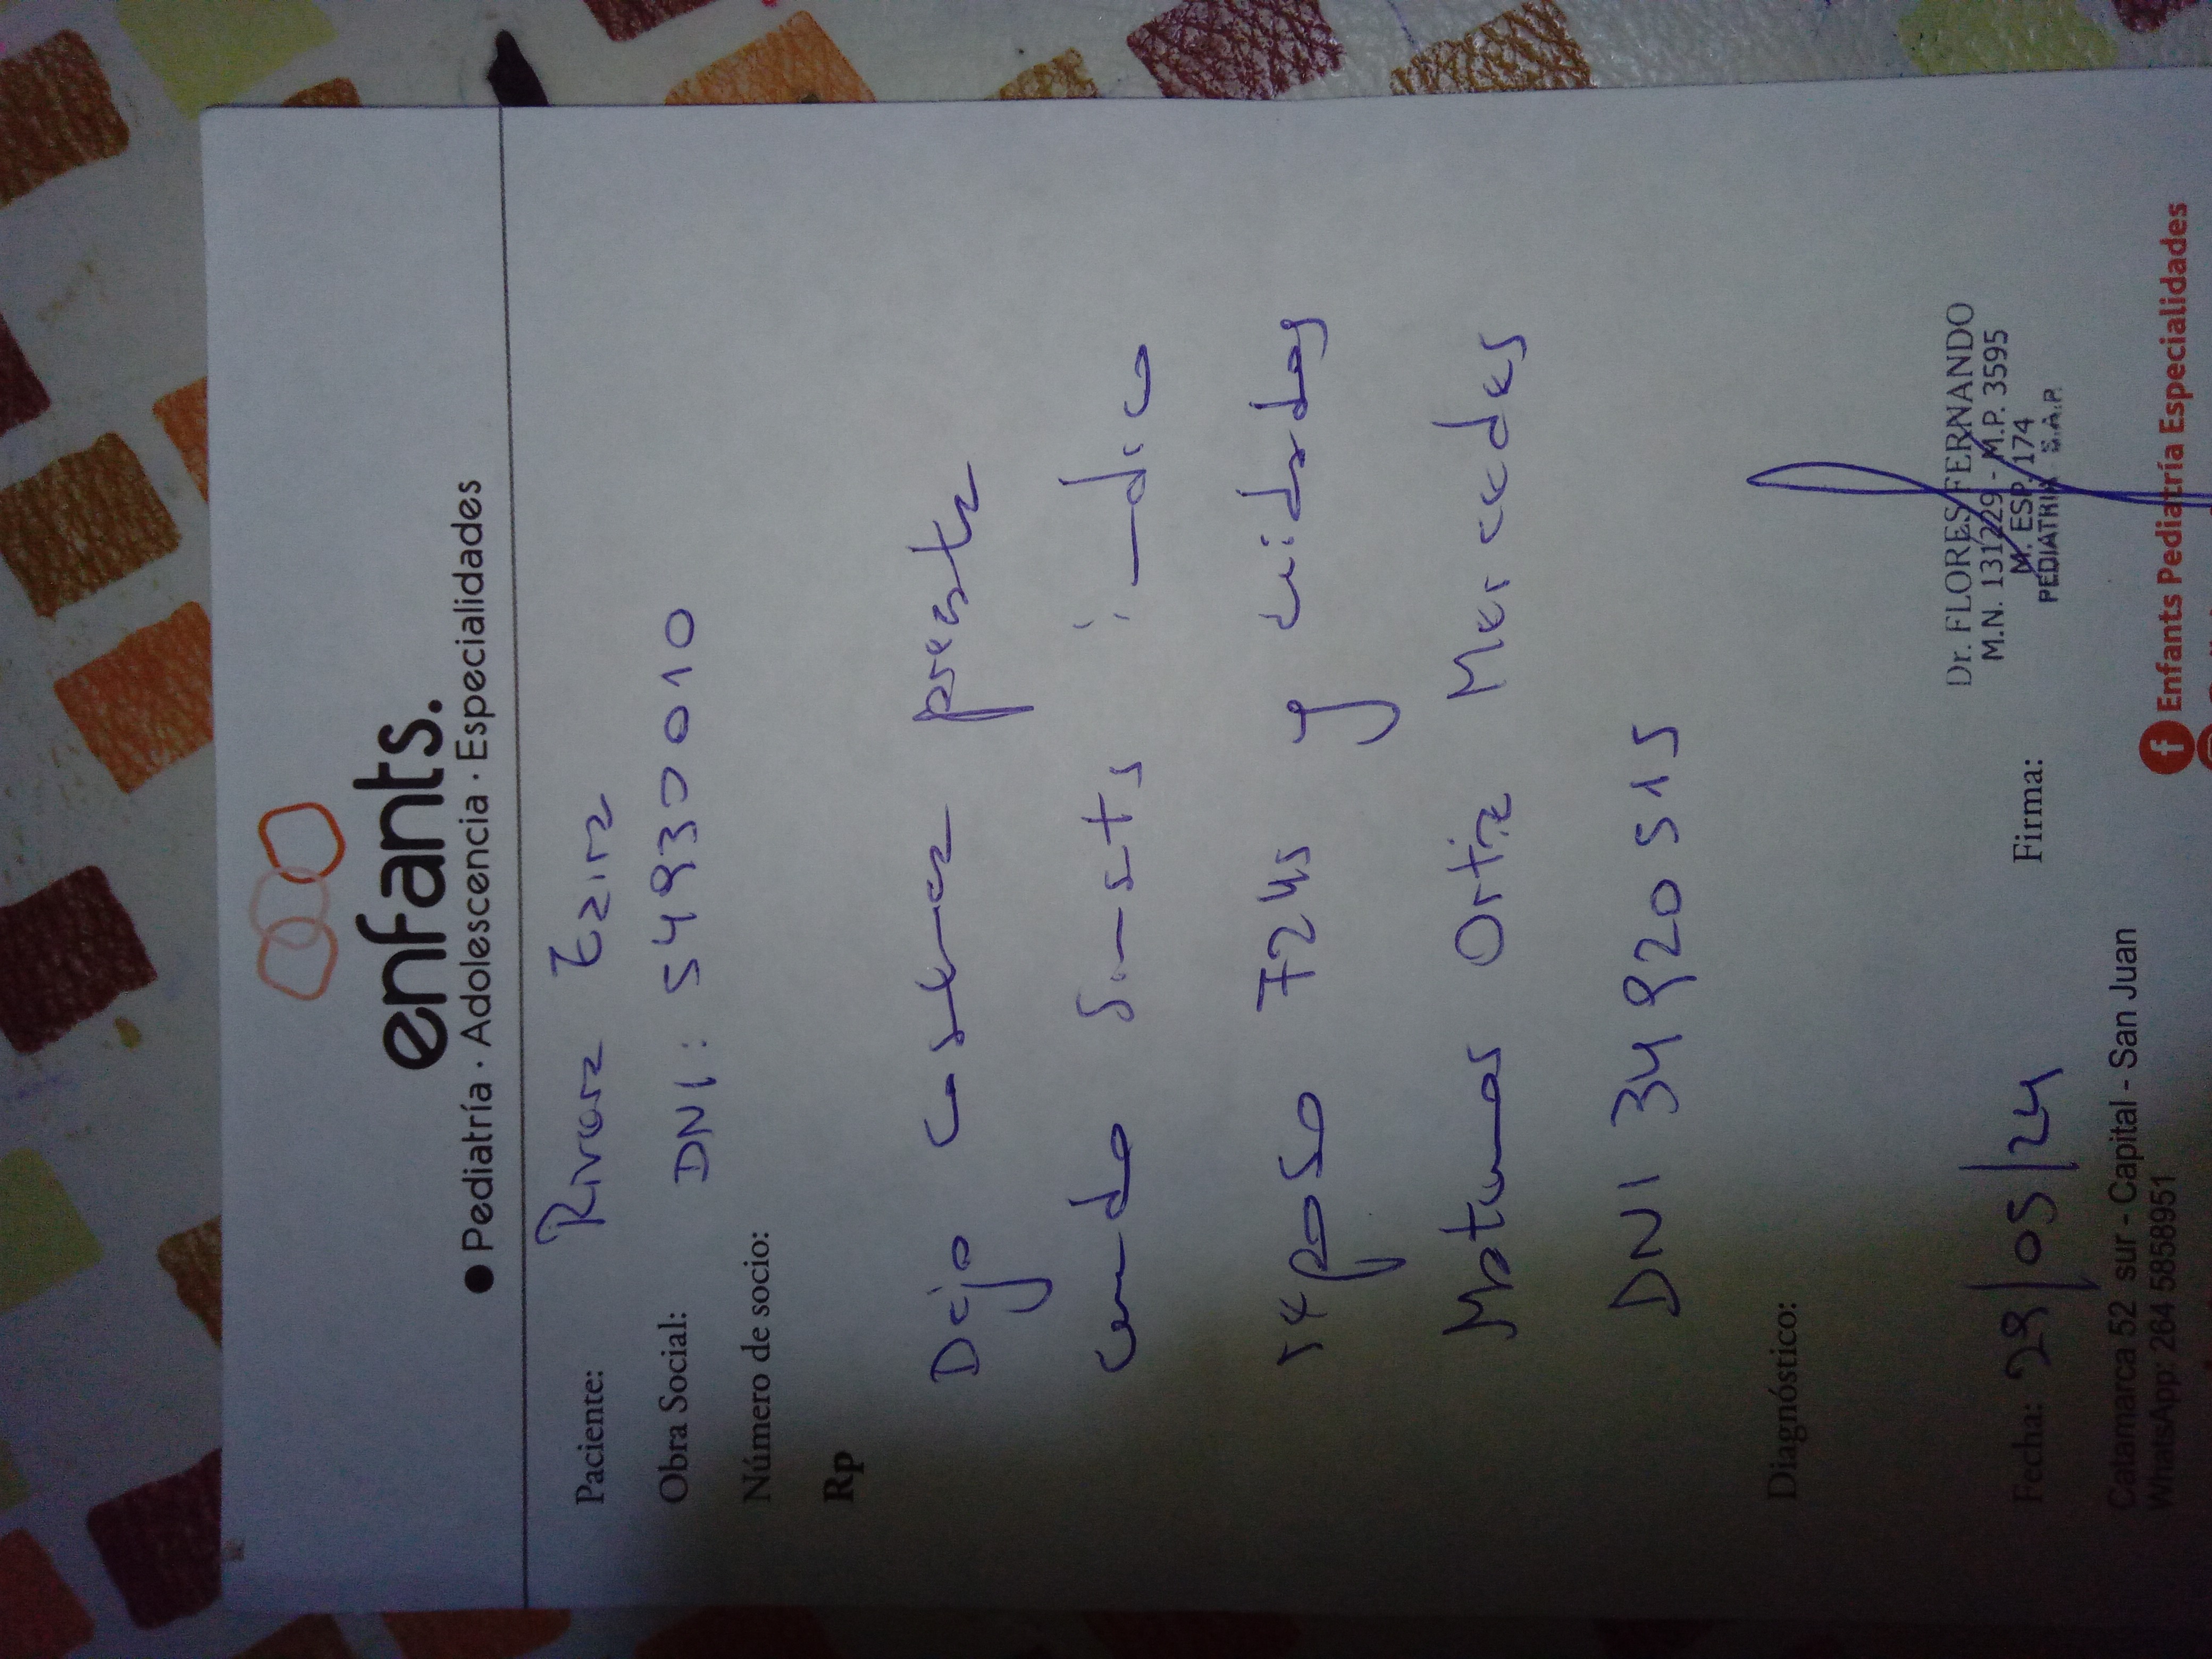 enfants.
Pediatría · Adolescencia · Especialidades
Paciente: Rivera
Obra Social: DNI: 54930010
Número de socio:
Rp
Dejo constancia presenta
cuadro indico
reposo 72hs y cuidados
Maternos Ortiz Mercedes
DNI 34920515
Diagnóstico:
Fecha: 29/05/24 Firma:
Dr. FLORES FERNANDO
M.N. 131229 - M.P. 3595
M. ESP. 174
PEDIATRIA S.A.P.
Catamarca 52 sur - Capital - San Juan
WhatsApp: 264 5858951
Enfants Pediatría Especialidades